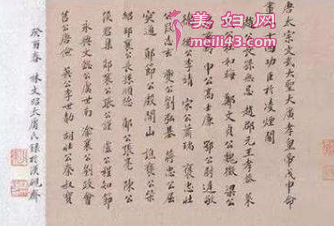 唐太宗文武大聖大廣孝皇帝戊申命
畫二十四功臣於凌煙閣
趙公長孫無忌 趙郡元王孝恭 萊
公杜如晦 鄭文貞公魏徵 梁公
房玄齡 申公高士廉 鄂公尉遲敬
德 衛公李靖 宋公蕭瑀 褒忠壯
公段志玄 夔公劉弘基 蔣忠公屈
突通 鄖節公殷開山 譙襄公柴
紹 邳襄公長孫順德 鄖公張亮 陳公
侯君集 郯襄公張公謹 盧公程知節
永興文懿公虞世南 渝襄公劉政會
莒公唐儉 英公李世勣 胡壯公秦叔寶
癸酉春
美妇网
www.meifu43.com